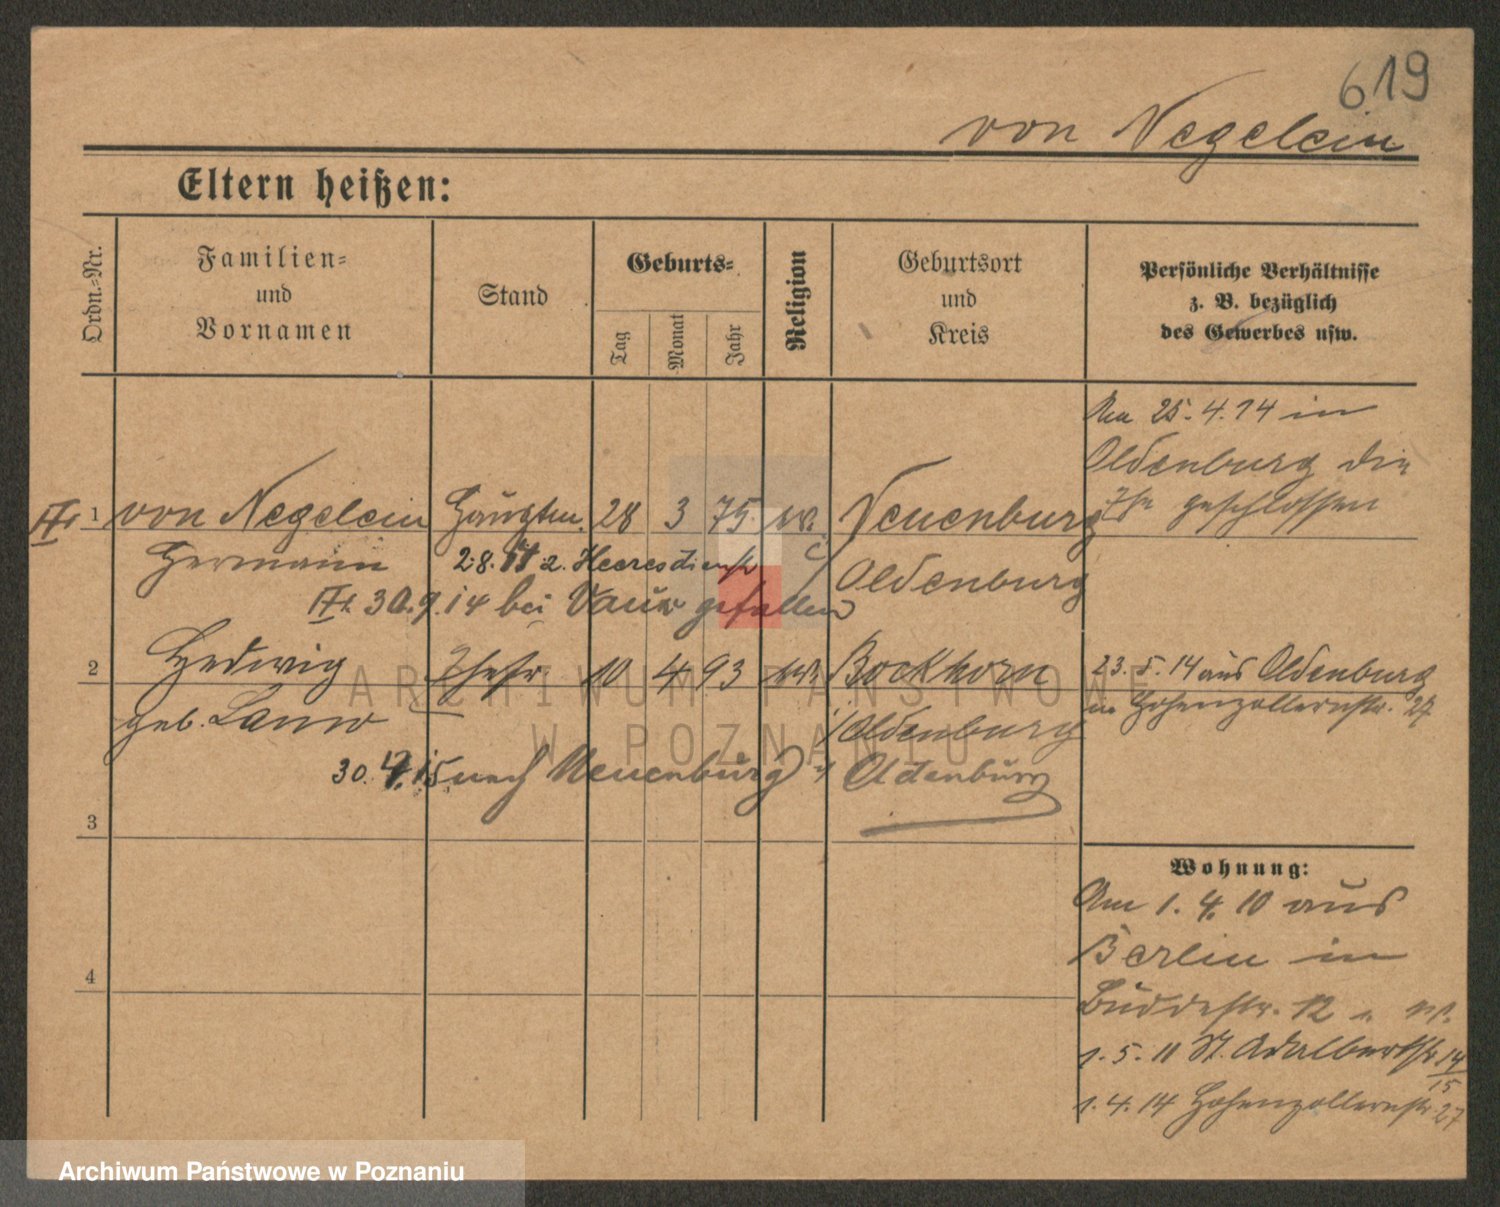 619
von Negelein
Eltern heißen:
Ordn.-Nr.
Familien-
und
Vornamen
Stand
Geburts-
Tag
Monat
Jahr
Religion
Geburtsort
und
Kreis
Persönliche Verhältnisse
z. B. bezüglich
des Gewerbes usw.
Am 25.4.14 in
Oldenburg die
Ehe geschlossen
1 von Negelein Hauptm. 28 3 75 ev. Neuenburg
Hermann 2.8.14 z. Heeresdienst Oldenburg
30.9.14 bei Vaux gefallen
2 Hedwig Ehefr. 10 4 93 ev. Bockhorn
23.5.14 aus Oldenburg
in Hohenzollernstr. 27
geb. i/Oldenburg
30.4.15 nach Neuenburg i/ Oldenburg
3
4
Wohnung:
Am 1.4.10 aus
Berlin in
Buddestr. 12
1.5.11 St. Adalbertstr 14/15
1.4.14 Hohenzollernstr. 27
ARCHIWUM PAŃSTWOWE
W POZNANIU
Archiwum Państwowe w Poznaniu